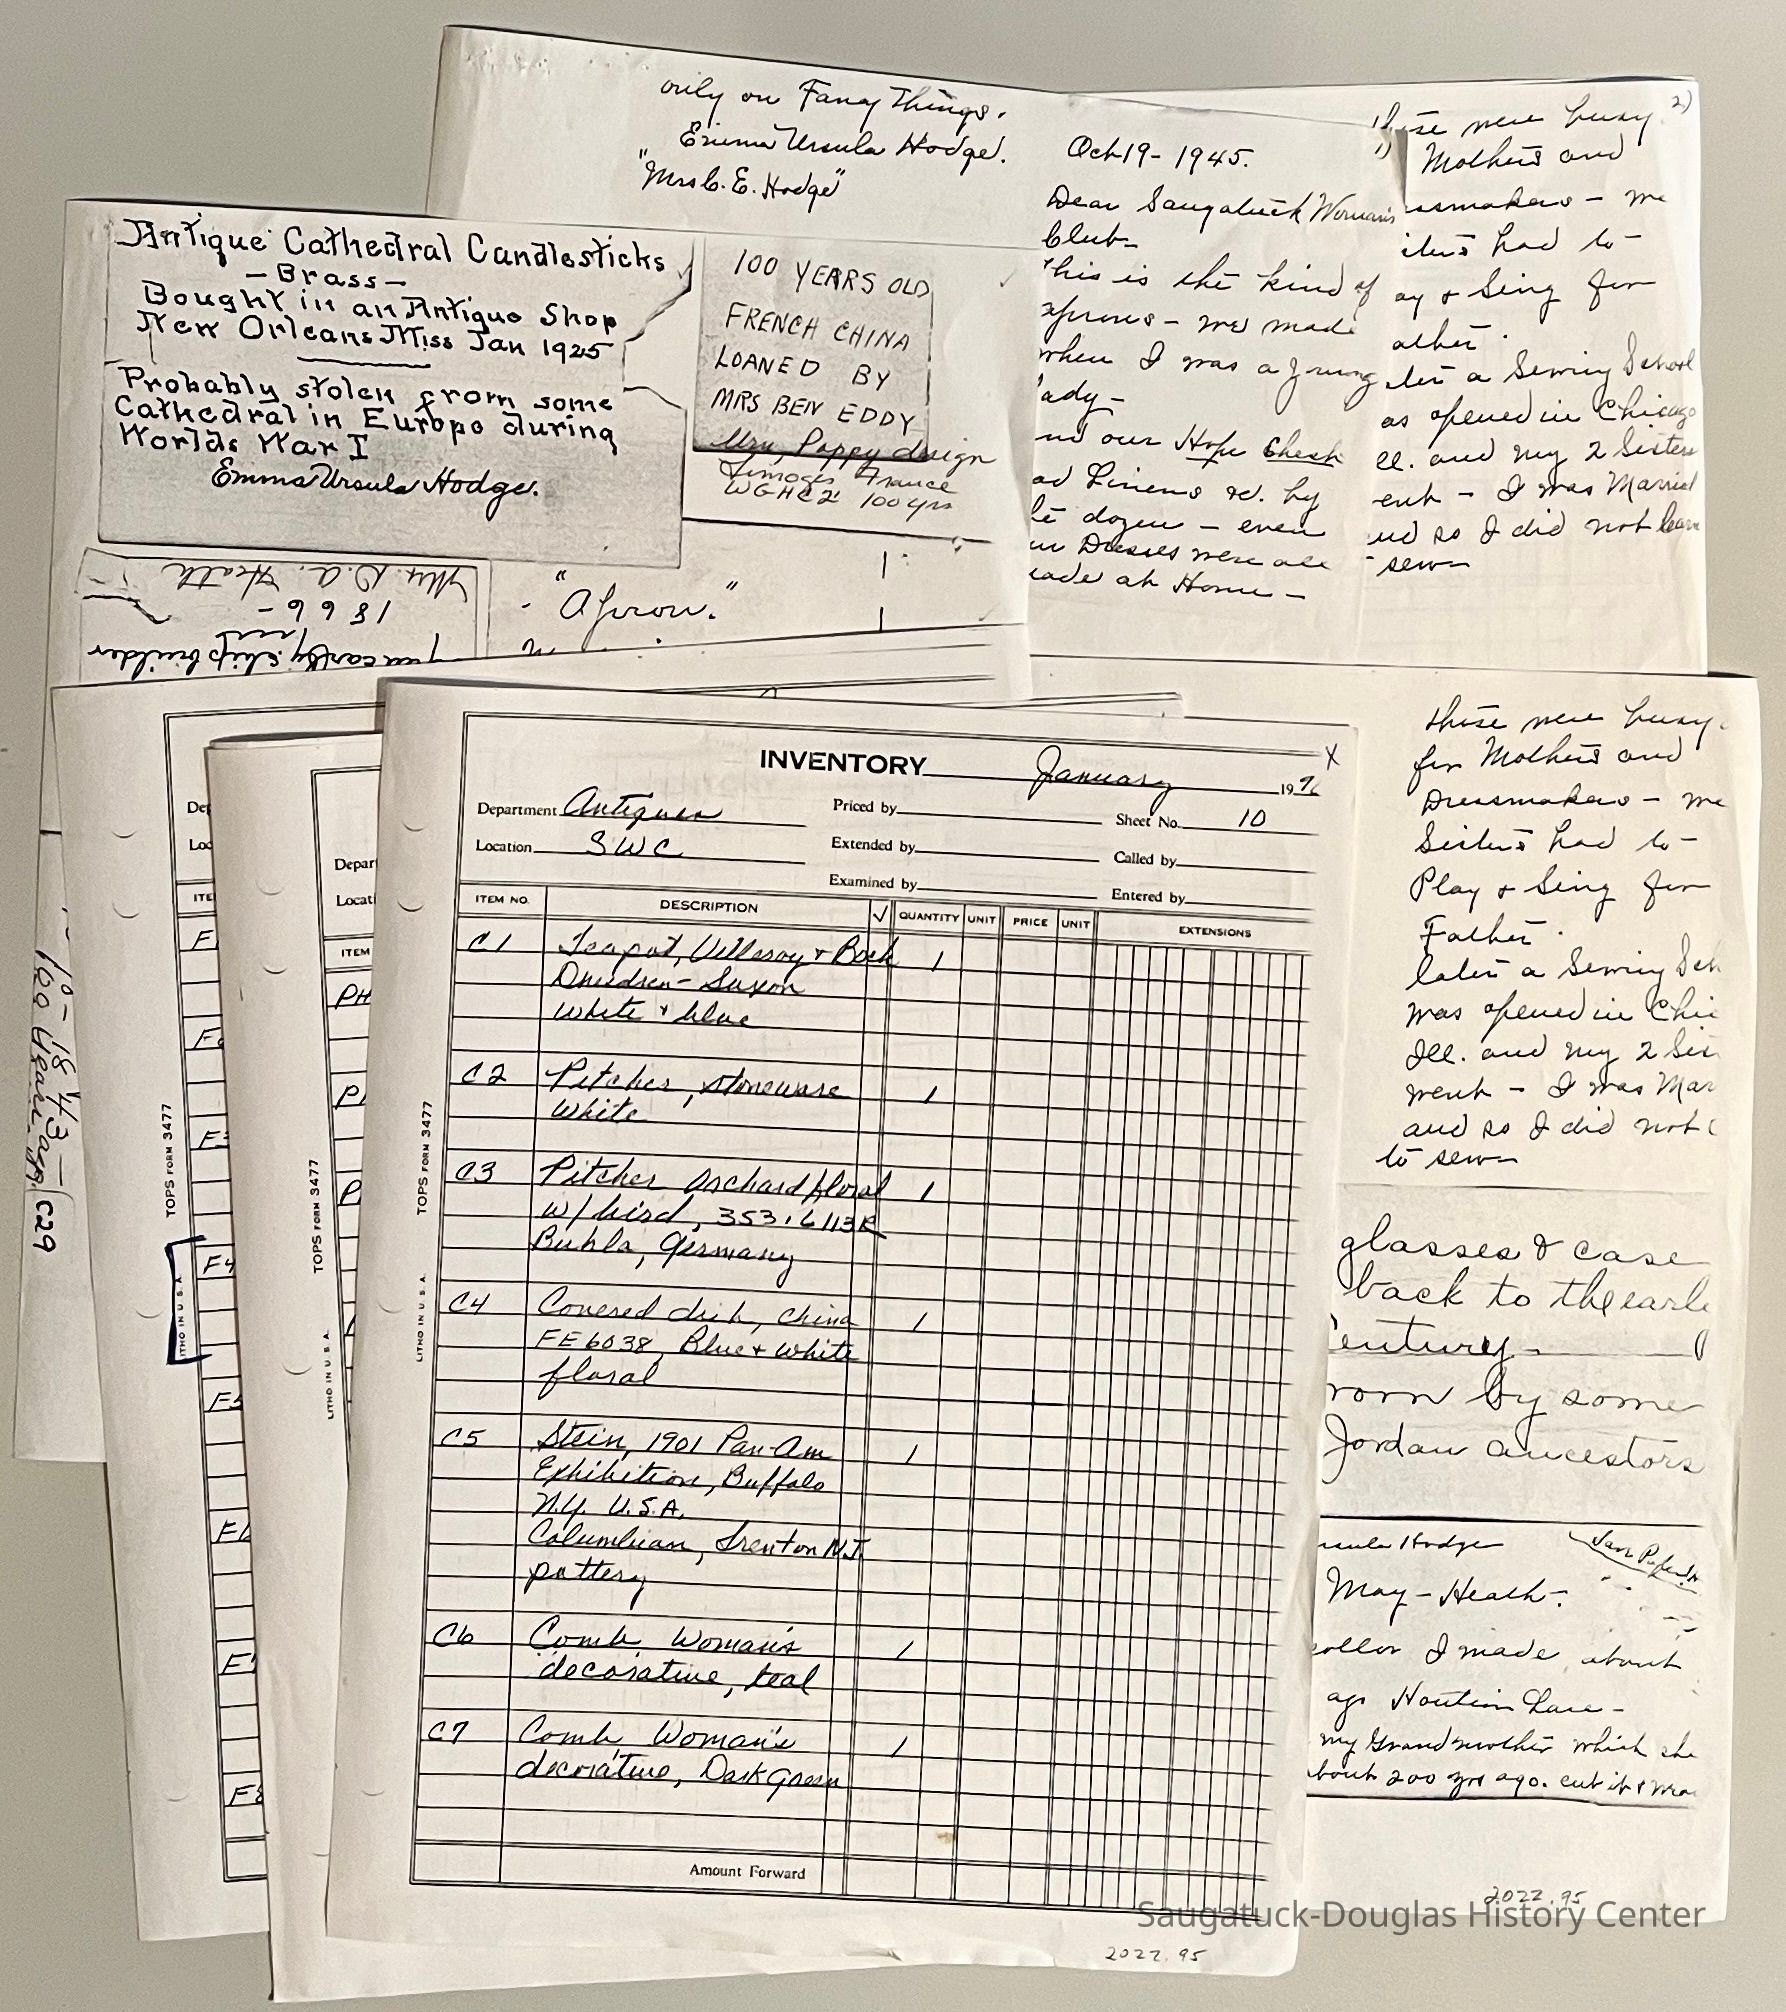 only on Fancy Things.
Emma Ursula Hodge.
"Mrs C. E. Hodge"
Oct 19 - 1945.
Dear Saugatuck Woman's
Club-
This is the kind of
aprons - we made
when I was a young
lady -
and our Hope Chest
had Linens &c. by
the dozen - even
our Dresses were all
made at Home -
2)
those were busy
Mothers and
ssmakers - me
isters had to -
ay & Sing for
ather.
ater a Sewing School
as opened in Chicago
Ill. and my 2 Sisters
ent - I was Married
and so I did not learn
sew-
Antique Cathedral Candlesticks
- Brass -
Bought in an Antique Shop
New Orleans Miss Jan 1925
Probably stolen from some
Cathedral in Europe during
Worlds War I
Emma Ursula Hodge.
100 YEARS OLD
FRENCH CHINA
LOANED BY
MRS BEN EDDY
Poppy design
Limoges France
WGH C2 100 yrs
Mr. D. A. Heath
1866 -
early ship builder
"Apron."
10 - 1843 -
100 years ago
C29
TOPS FORM 3477
LITHO IN U. S. A.
Dep
Loc
ITE
F4
F5
F8
TOPS FORM 3477
LITHO IN U. S. A.
Depar
Locati
ITEM
PH
INVENTORY January 1976
X
Department Antiques Priced by Sheet No. 10
Location SWC Extended by Called by
Examined by Entered by
ITEM NO. DESCRIPTION √ QUANTITY UNIT PRICE UNIT EXTENSIONS
C1 Teapot, Villeroy & Bock 1
Dresden - Saxon
White & blue
C2 Pitcher, stoneware 1
White
C3 Pitcher orchard floral 1
w/ bird, 353.6113R
Buhla, Germany
C4 Covered dish, china 1
FE6038, Blue & white
floral
C5 Stein, 1901 Pan-Am 1
Exhibition, Buffalo
N.Y. U.S.A.
Columbian, Trenton N.J.
pottery
C6 Comb Woman's 1
decorative, teal
C7 Comb Woman's 1
decorative, Dark Green
Amount Forward
TOPS FORM 3477
LITHO IN U. S. A.
2022.95
those were busy
for Mothers and
Dressmakers - me
Sisters had to -
Play & Sing for
Father.
later a Sewing Sch
was opened in Chi
Ill. and my 2 Sis
went - I was Mar
and so I did not
to sew-
glasses & case
back to the earl
entury
worn by some
Jordan ancestors
rsula Hodge
May - Heath -
collar I made about
ago Honiton Lace -
my Grandmother which she
about 200 yrs ago. cut it &
2022.95
Saugatuck-Douglas History Center